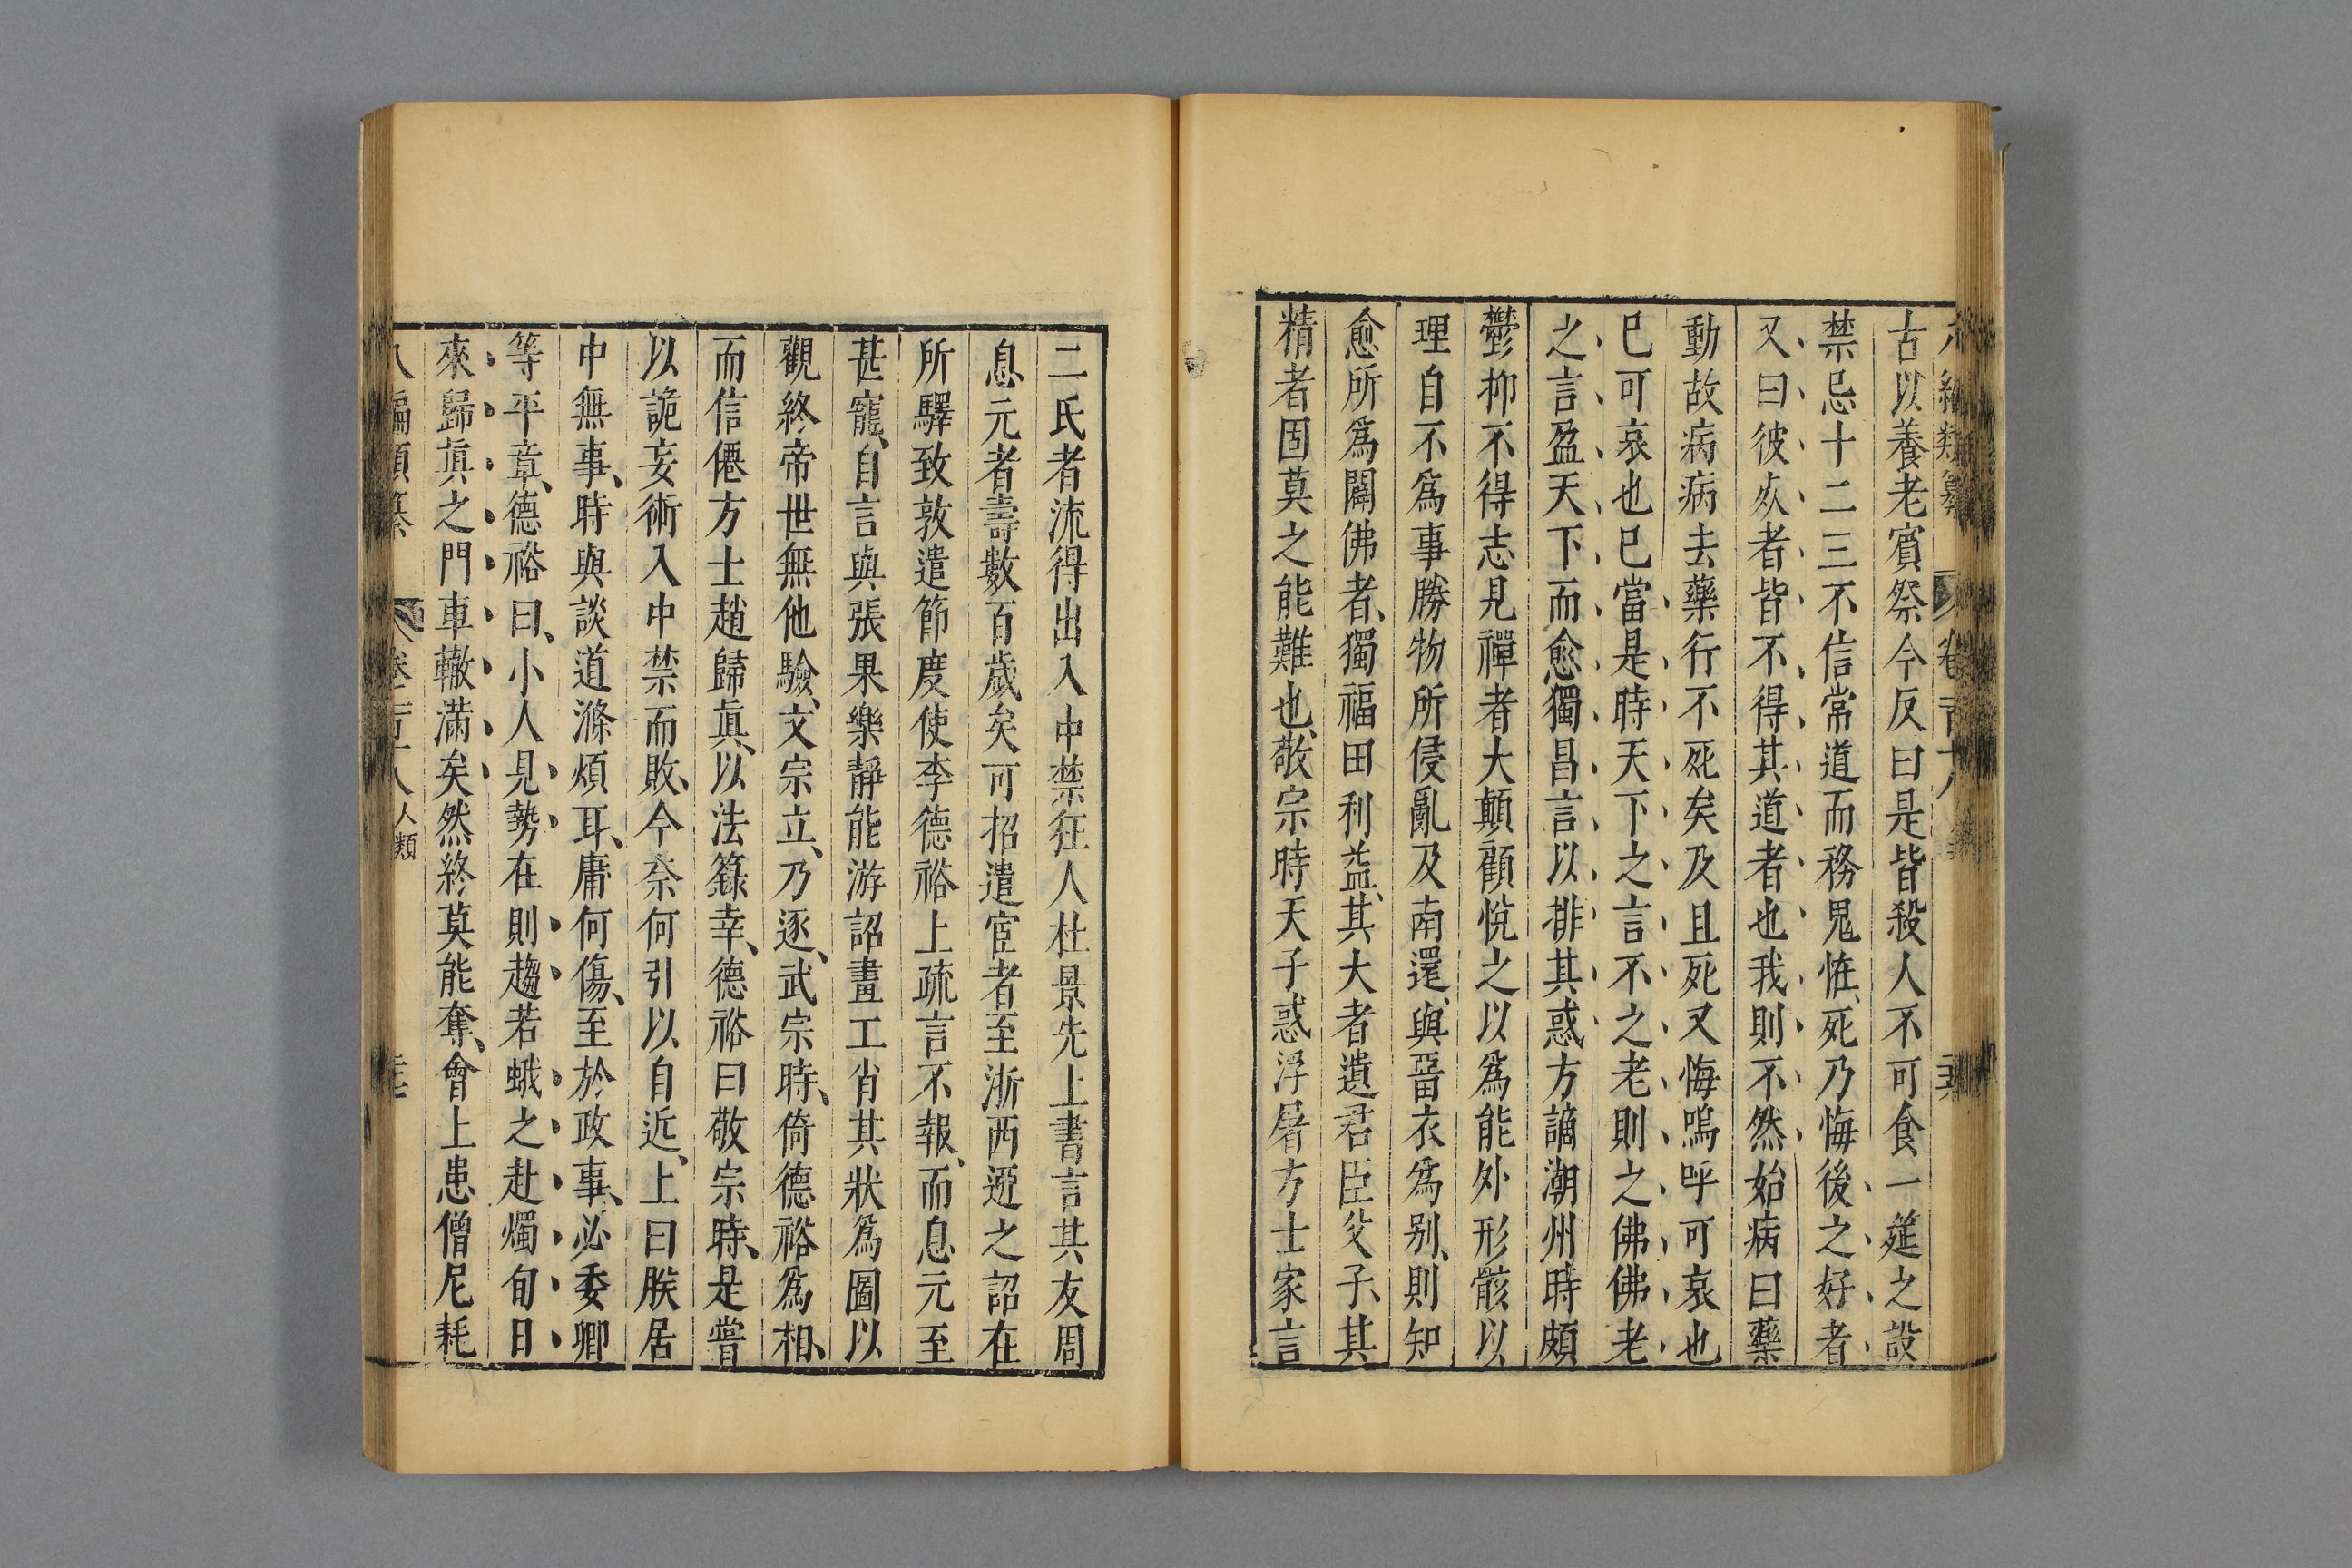 古以養老賓祭今反曰是皆殺人不可食一筵之設
禁忌十二三不信常道而務鬼恠、死乃悔後之好者
又曰彼死者皆不得其道者也我則不然始病曰藥
動故病病去藥行不死矣及且死又悔嗚呼可哀也
已可哀也已當是時天下之言不之老則之佛佛老
之言盈天下而愈獨昌言以排其惑方謫潮州時頗
鬱抑不得志見禪者大顛顧悅之以為能外形骸以
理自不為事勝物所侵亂及南還、與畱衣為别、則知
愈所為闢佛者、獨福田利益、其大者遺君臣父子、其
精者固莫之能難也、敬宗時天子惑浮屠方士家言
二氏者流得出入中禁狂人杜景先上書言其友周
息元者壽數百歲矣可招遣宦者至浙西迎之詔在
所驛致敦遣節度使李德裕上疏言不報、而息元至
甚寵、自言與張果樂靜能游詔畫工肖其狀為圖以
觀終帝世無他驗、文宗立、乃逐、武宗時、倚德裕為相、
而信僊方士趙歸眞、以法籙幸、德裕曰敬宗時、是嘗
以詭妄術入中禁而敗、今奈何引以自近、上曰朕居
中無事、時與談道滌煩耳、庸何傷、至於政事、必委卿
等平章、德裕曰、小人見勢在則趨若蛾之赴燭旬日
來歸眞之門車轍滿矣然終莫能奪、會上患僧尼耗
八編類纂 卷一百十八 人類